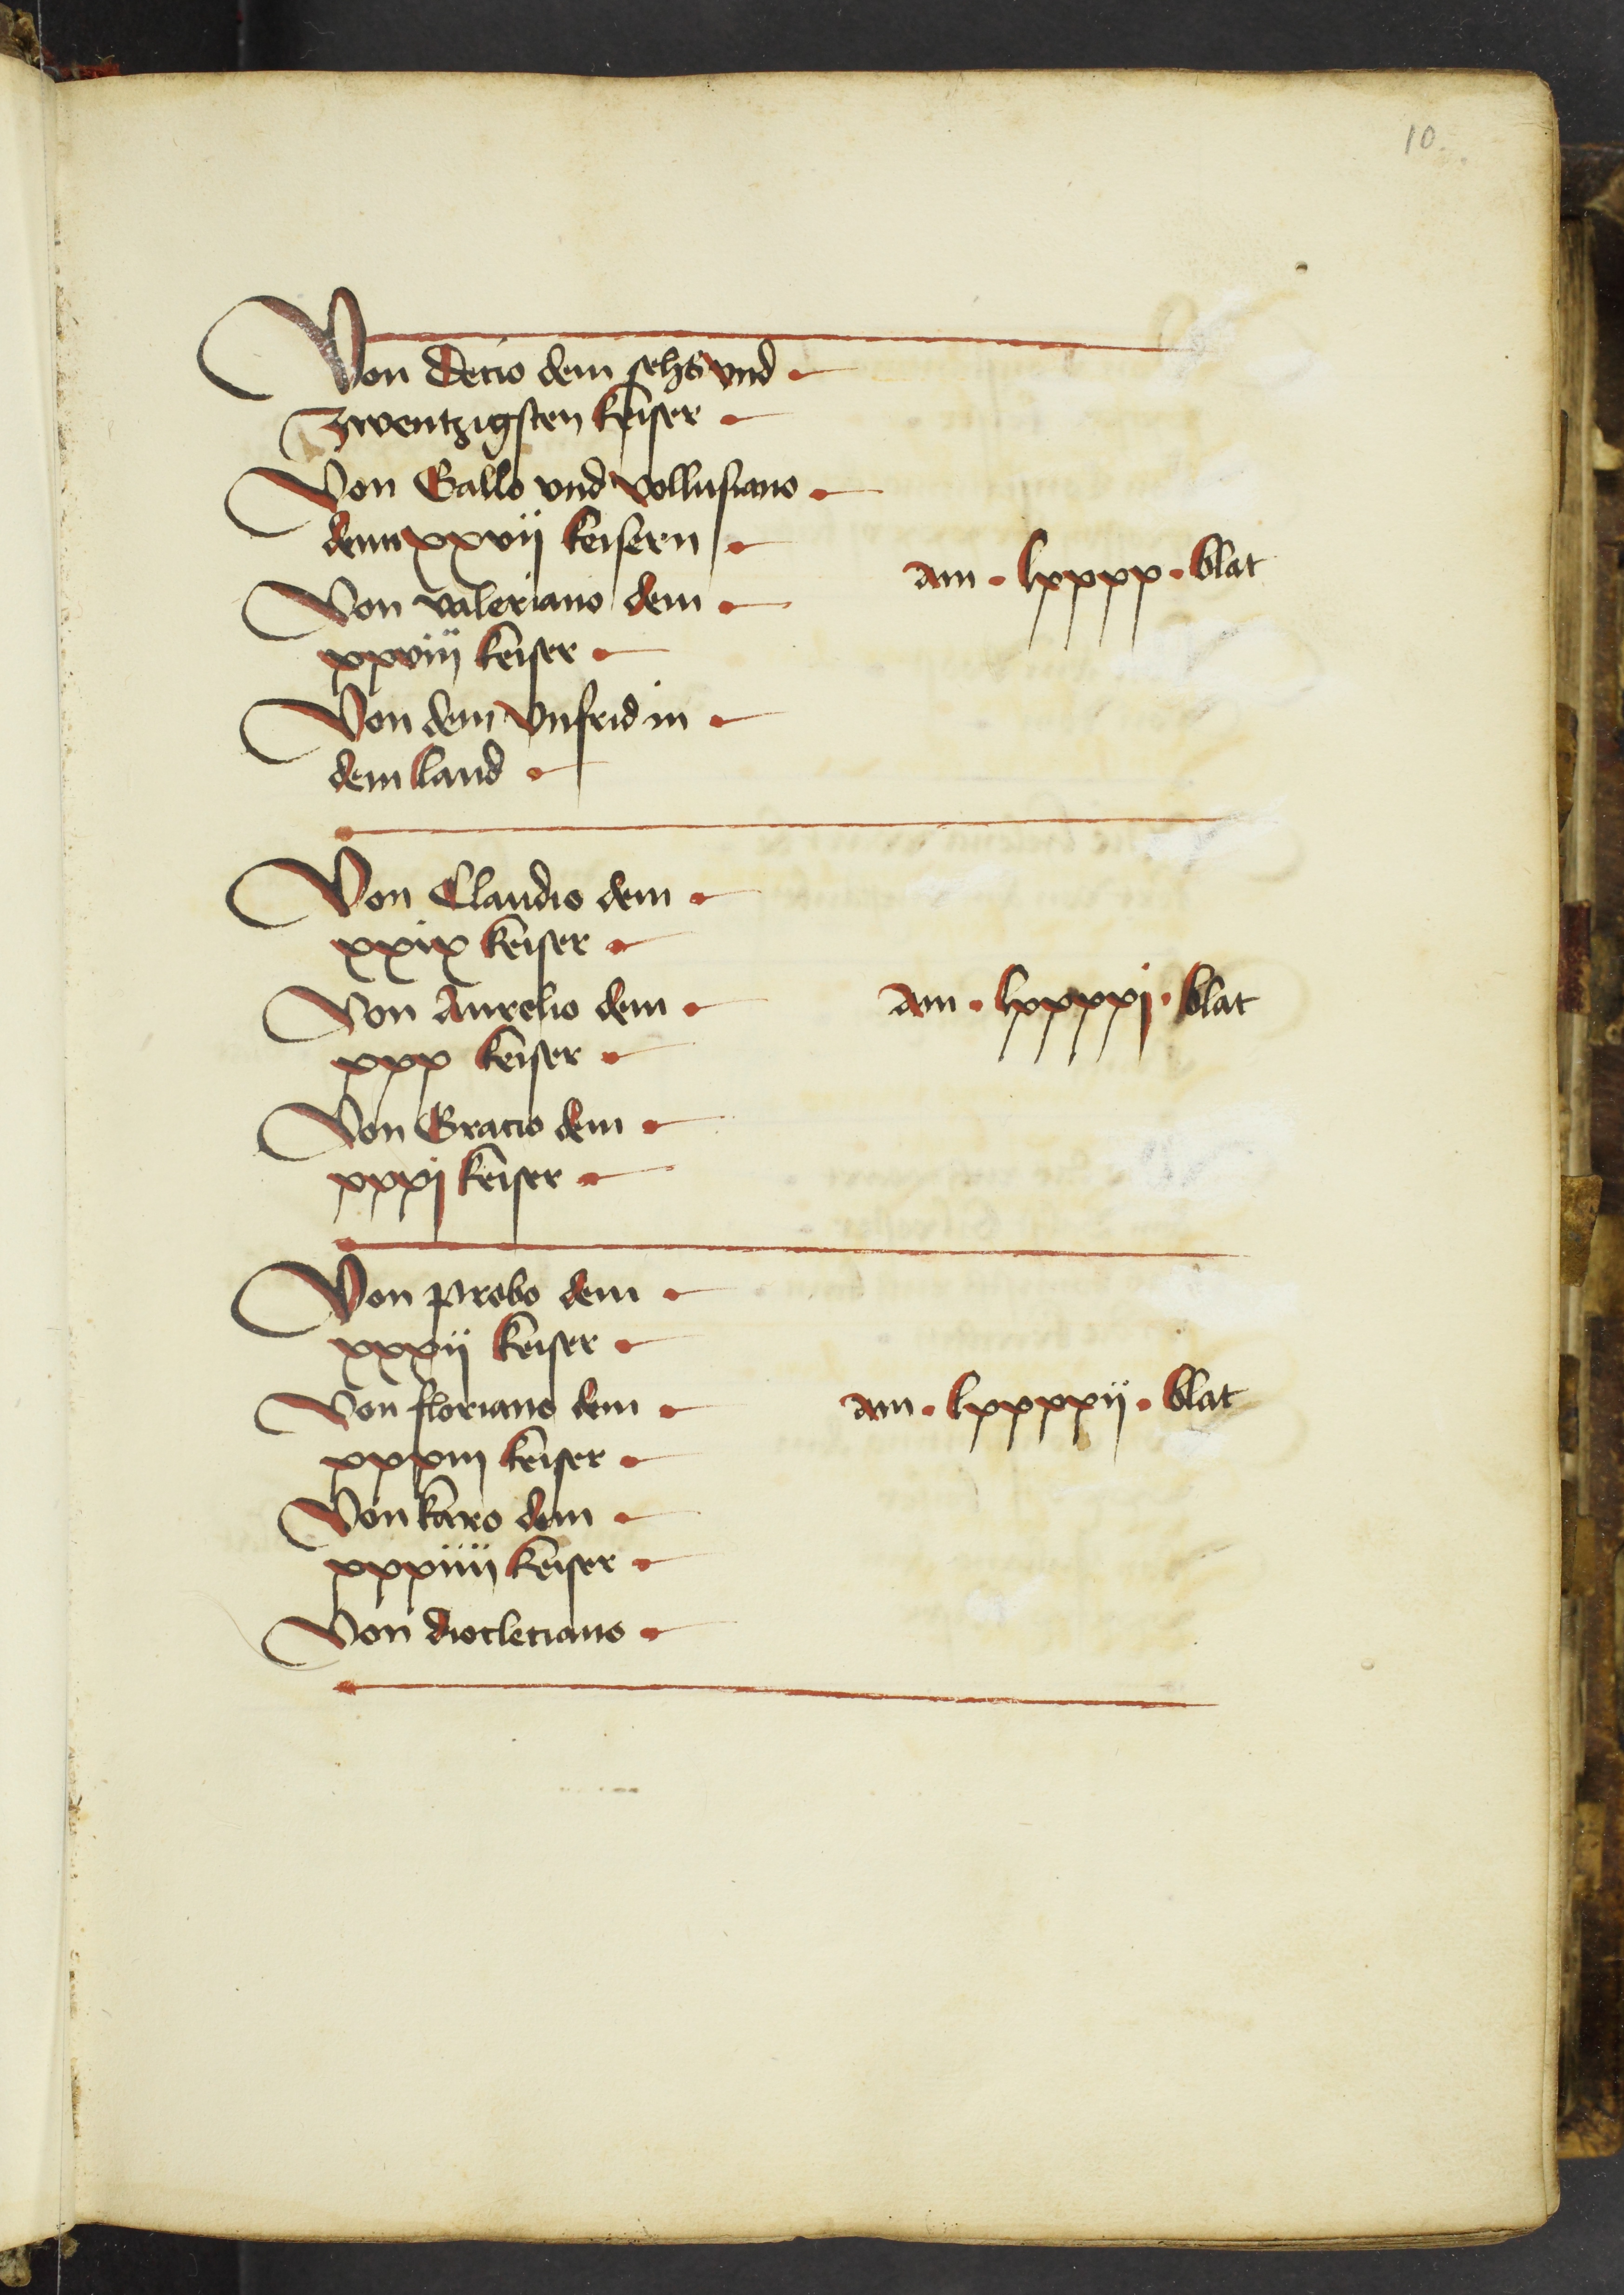 10.
Von Decio dem sehs vnd
zwentzigsten keiser
Von Gallo vnd vollusiano
denn xxvij keisern
am · lxxxx · blat
Von valeriano dem
xxviij keiser
Von dem vnfrid in
dem land
Von Claudio dem
xxix keiser
Von Aurelio dem
am · lxxxxj · blat
xxx keiser
Von Gracio dem
xxxj keiser
Von probo dem
xxxij keiser
Von floriano dem
am · lxxxxij · blat
xxxiij keiser
Von karo dem
xxxiiij keiser
Von diocleciano